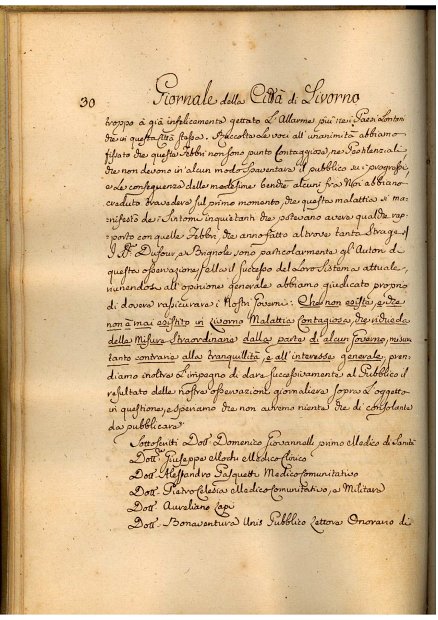 30 Giornale della Città di Livorno
troppo à già infelicemente gettato L'Allarme più nei Paesi Lontani
che in questa Città stessa. Raccolte Le voci all'unanimità abbiamo
fissato che queste Febbri non sono punto Contaggiose, ne Pestilenziali
che non devono in alcun modo spaventare il pubblico su i progressi,
e Le conseguenze delle medesime benchè alcuni fra Noi abbiano
creduto travedere sul primo momento, che questa malattia si ma-
nifestò de i Sintomi inquietanti che potevano avere qualche rap-
porto con quelle Febbri, che anno fatto altrove tanta Strage. I
Dufour, e Brignole sono particolarmente gl'Autori di
questa osservazione, Sella il successo del Loro Sistema attuale
riunendosi all'opinione generale abbiamo giudicato proprio
di dovere rassicurare i Nostri Governi: Che non esiste, e che
non è mai esistito in Livorno Malattia Contagiosa, che richieda
delle Misure Straordinarie dalla parte di alcun Governo, misure
tanto contrarie alla tranquillità, e all'interesse generale, pren-
diamo inoltre L'impegno di dare successivamente al Pubblico il
resultato delle nostre osservazioni giornaliere sopra L'oggetto
in questione, e speriamo che non avremo niente che di consolante
da pubblicare
Sottoscritti Dott. Domenico Giovannelli primo Medico di Sanità
Dott. Giuseppe Mochi Medico Clinico
Dott. Alessandro Pasquetti Medico Comunitativo
Dott. Pietro Celesia Medico Comunitativo, e Militare
Dott. Aureliano Lapi
Dott. Bonaventura Unis Pubblico Lettore Onorario di